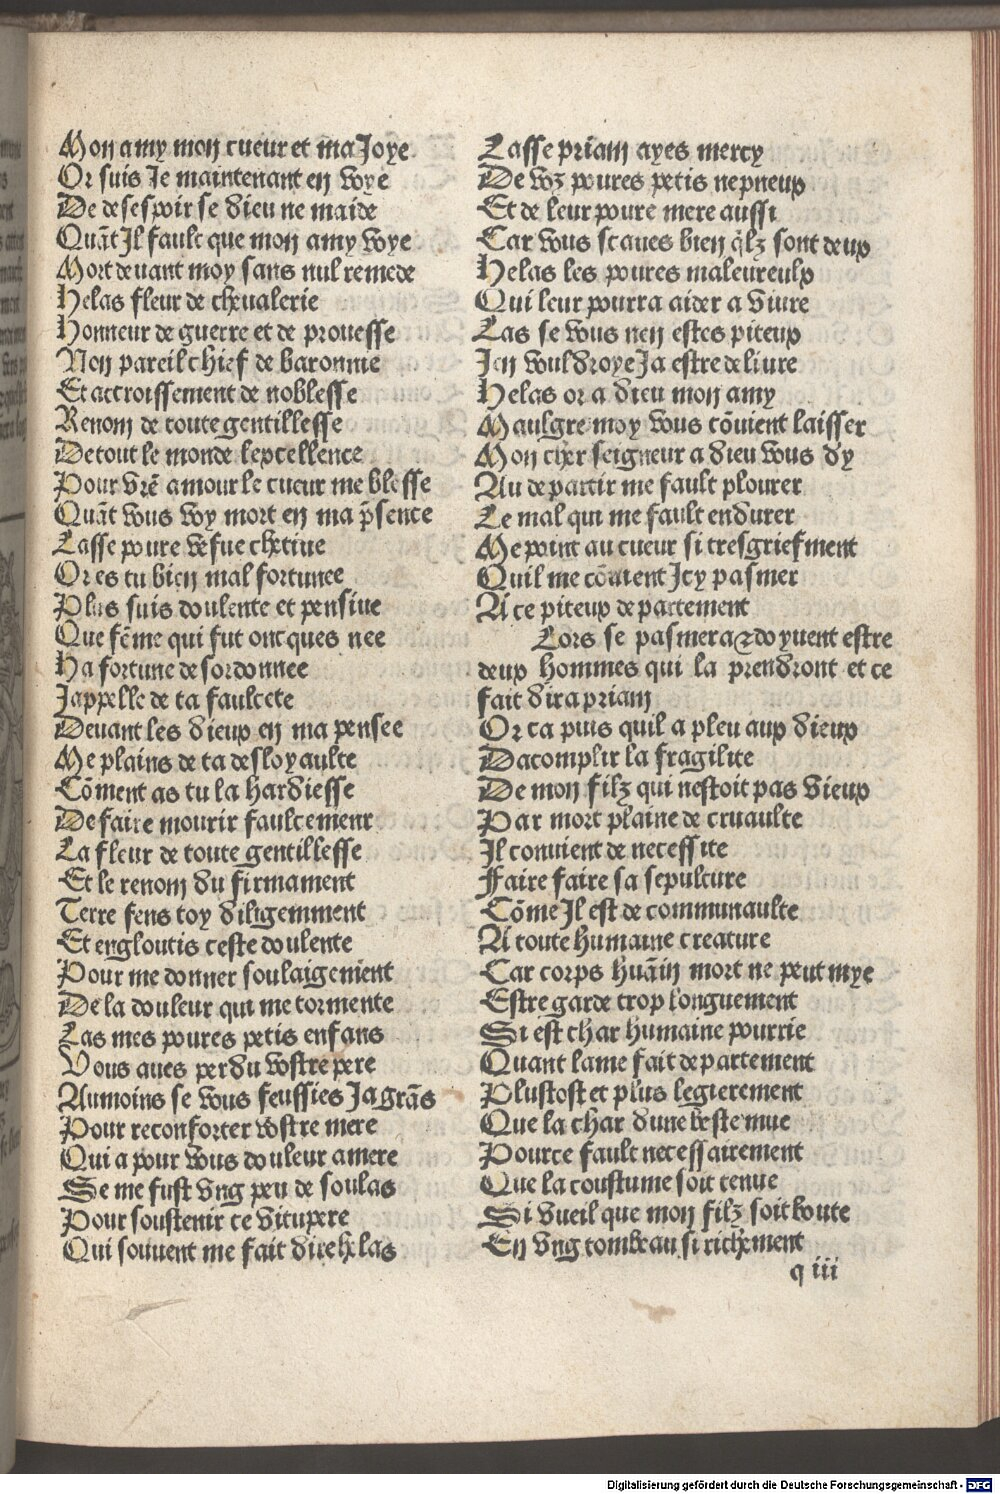 Mon amy mon cueur et ma Joye
Or suis Je maintenant en voye
De desespoir se dieu ne maide
Quāt Il fault que mon amy voye
Mort deuant moy sans nul remede
Helas fleur de cheualerie
Honneur de guerre et de prouesse
Non pareil chief de baronnie
Et accroissement de noblesse
Renom de toute gentillesse
De tout le monde lexcellence
Pour vr̄e amour le cueur me blesse
Quāt vous voy mort en ma p̄sence
Lasse poure vefue chetiue
Or es tu bien mal fortunee
Plus suis doulente et pensiue
Que fēme qui fut oncques nee
Ha fortune desordonnee
Jappelle de ta faulcete
Deuant les dieux en ma pensee
Me plains de ta desloyaulte
Cōment as tu la hardiesse
De faire mourir faulcement
La fleur de toute gentillesse
Et le renom du firmament
Terre fens toy diligemment
Et engloutis ceste doulente
Pour me donner soulaigement
De la douleur qui me tormente
Las mes poures petis enfans
Vous aues perdu vostre pere
Aumoins se vous feussies Ja grās
Pour reconforter vostre mere
Qui a pour vous douleur amere
Se me fust vng peu de soulas
Pour soustenir ce vitupere
Qui souuent me fait dire helas
Lasse priam ayes mercy
De voz poures petis nepueux
Et de leur poure mere aussi
Car vous scaues bien q̄lz sont deux
Helas les poures maleureulx
Qui leur pourra aider a viure
Las se vous nen estes piteux
Jen vouldroye Ja estre deliure
Helas or a dieu mon amy
Maulgre moy vous cōuient laisser
Mon cher seigneur a dieu vous dy
Au departir me fault plourer
Le mal qui me fault endurer
Me point au cueur si tresgriefment
Quil me cōuient Jcy pasmer
A ce piteux departement
Lors se pasmera ⁊ doyuent estre
deux hommes qui la prendront et ce
fait dira priam
Or ca puis quil a pleu aux dieux
Dacomplir la fragilite
De mon filz qui nestoit pas vieux
Par mort plaine de cruaulte
Il conuient de necessite
Faire faire sa sepulture
Cōme Il est de communaulte
A toute humaine creature
Car corps huāin mort ne peut mye
Estre garde trop longuement
Si est char humaine pourrie
Quant lame fait departement
Plustost et plus legierement
Que la char dune beste mue
Pource fault necessairement
Que la coustume soit tenue
Si vueil que mon filz soit boute
En vng tombeau si richement
q iii
Digitalisierung gefördert durch die Deutsche Forschungsgemeinschaft - DFG